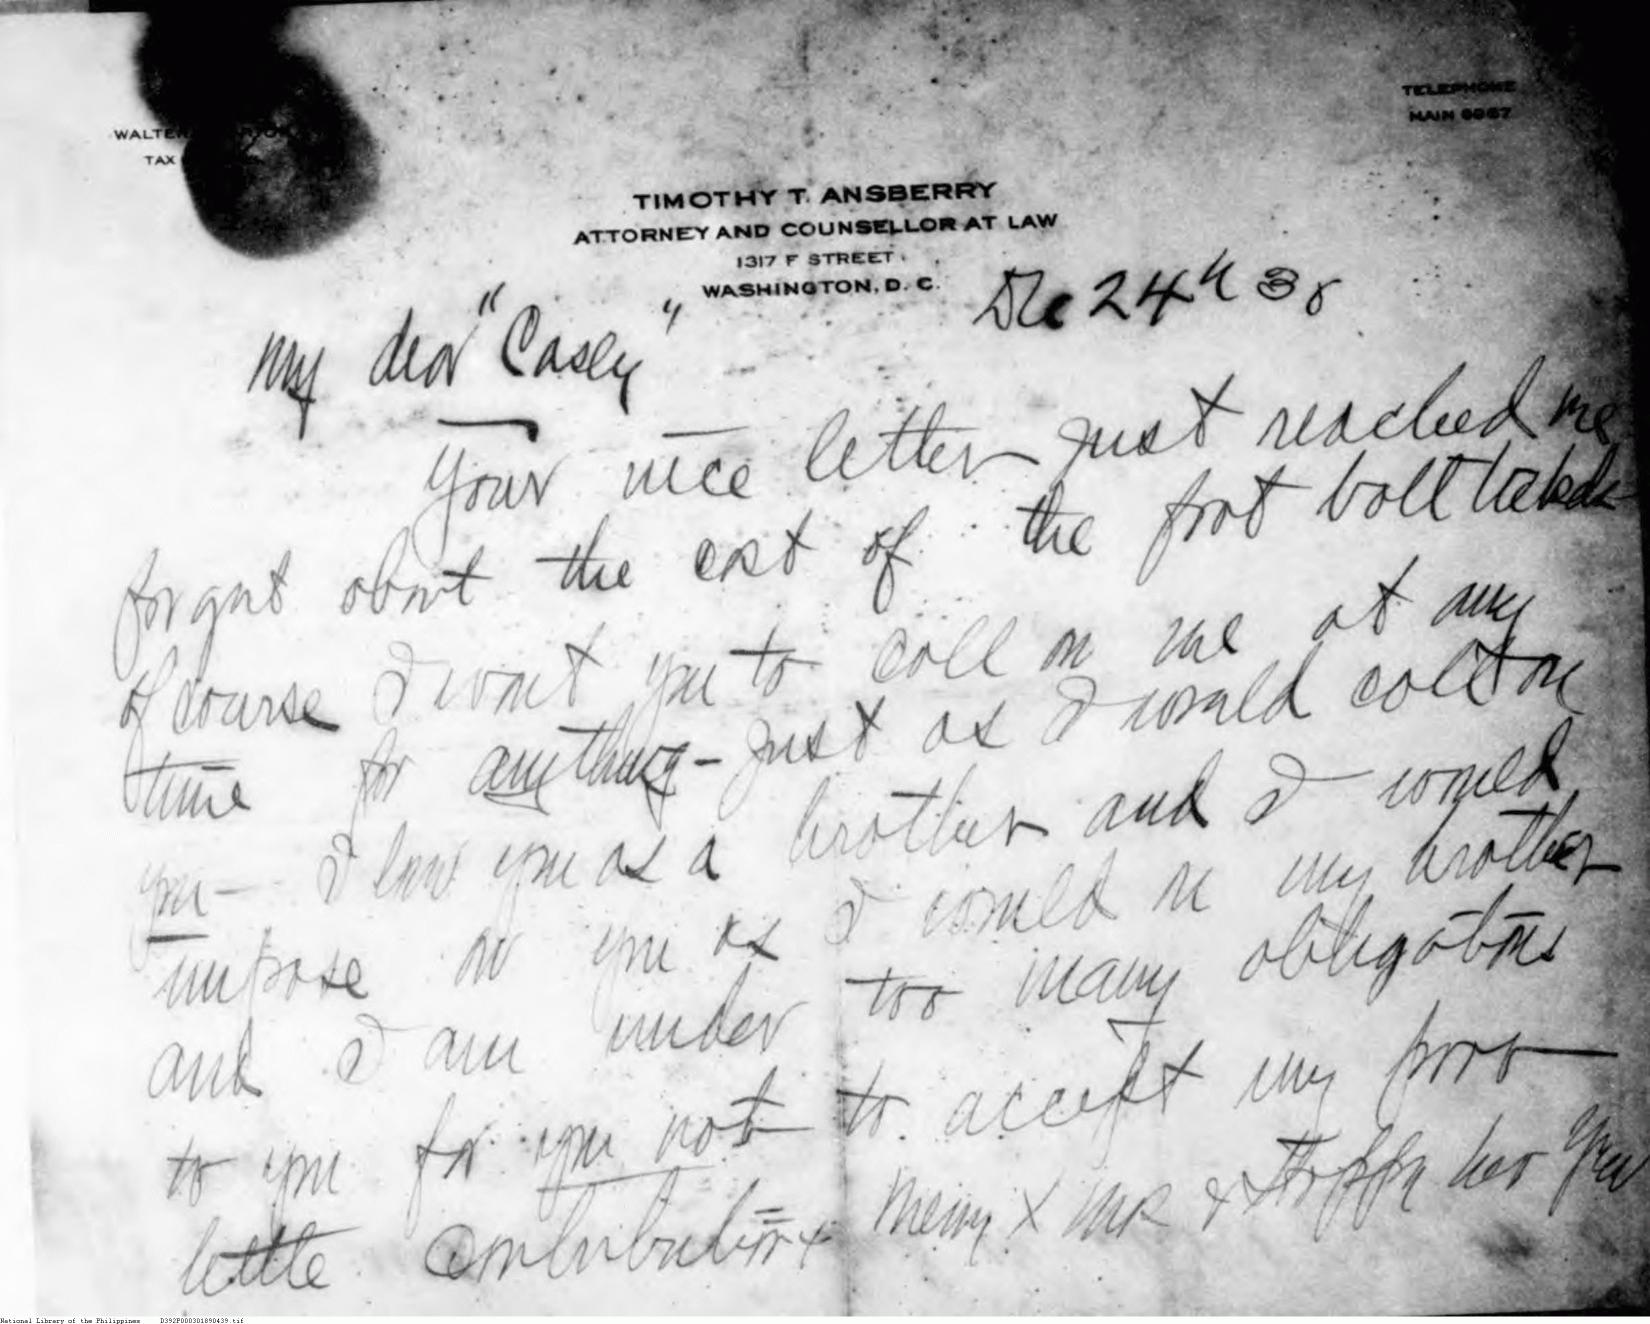 TELEPHONE
MAIN 6967
WALTER
TAX
TIMOTHY T. ANSBERRY
ATTORNEY AND COUNSELLOR AT LAW
1317 F STREET
WASHINGTON, D. C.
Dec 24th 38
My dear "Casey"
Your nice letter just reached me
forget about the cost of the foot ball tickets
of course I want you to call on me at any
time for anything - just as I would call on
you - I love you as a brother and I would
impose on you as I would on my brother
and I am under too many obligations
to you for you not to accept my poor
little contribution + Merry X mas + Happy New Year
National Library of the Philippines D392P000301890439.tif